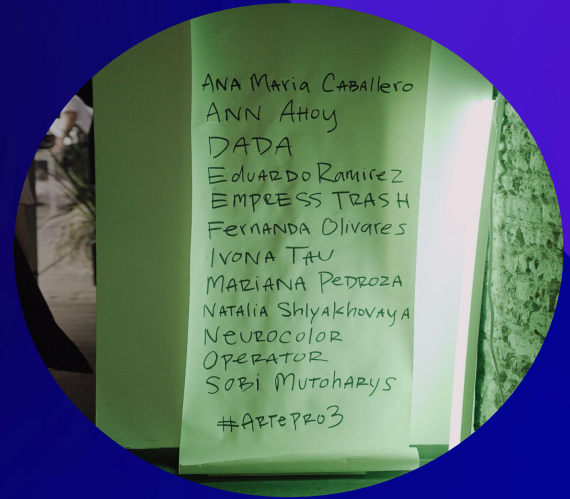 ANA Maria CABAllero
ANN AHoy
DADA
EduARDo Ramirez
EMPRESS TRASH
FerNANDA Olivares
IVONA TAU
MARIANA PEDROZA
NATAliA Shlyakhovaya
NeuroColoR
OPERATOR
SOBI MUTOHARYS
#ARTePRO3